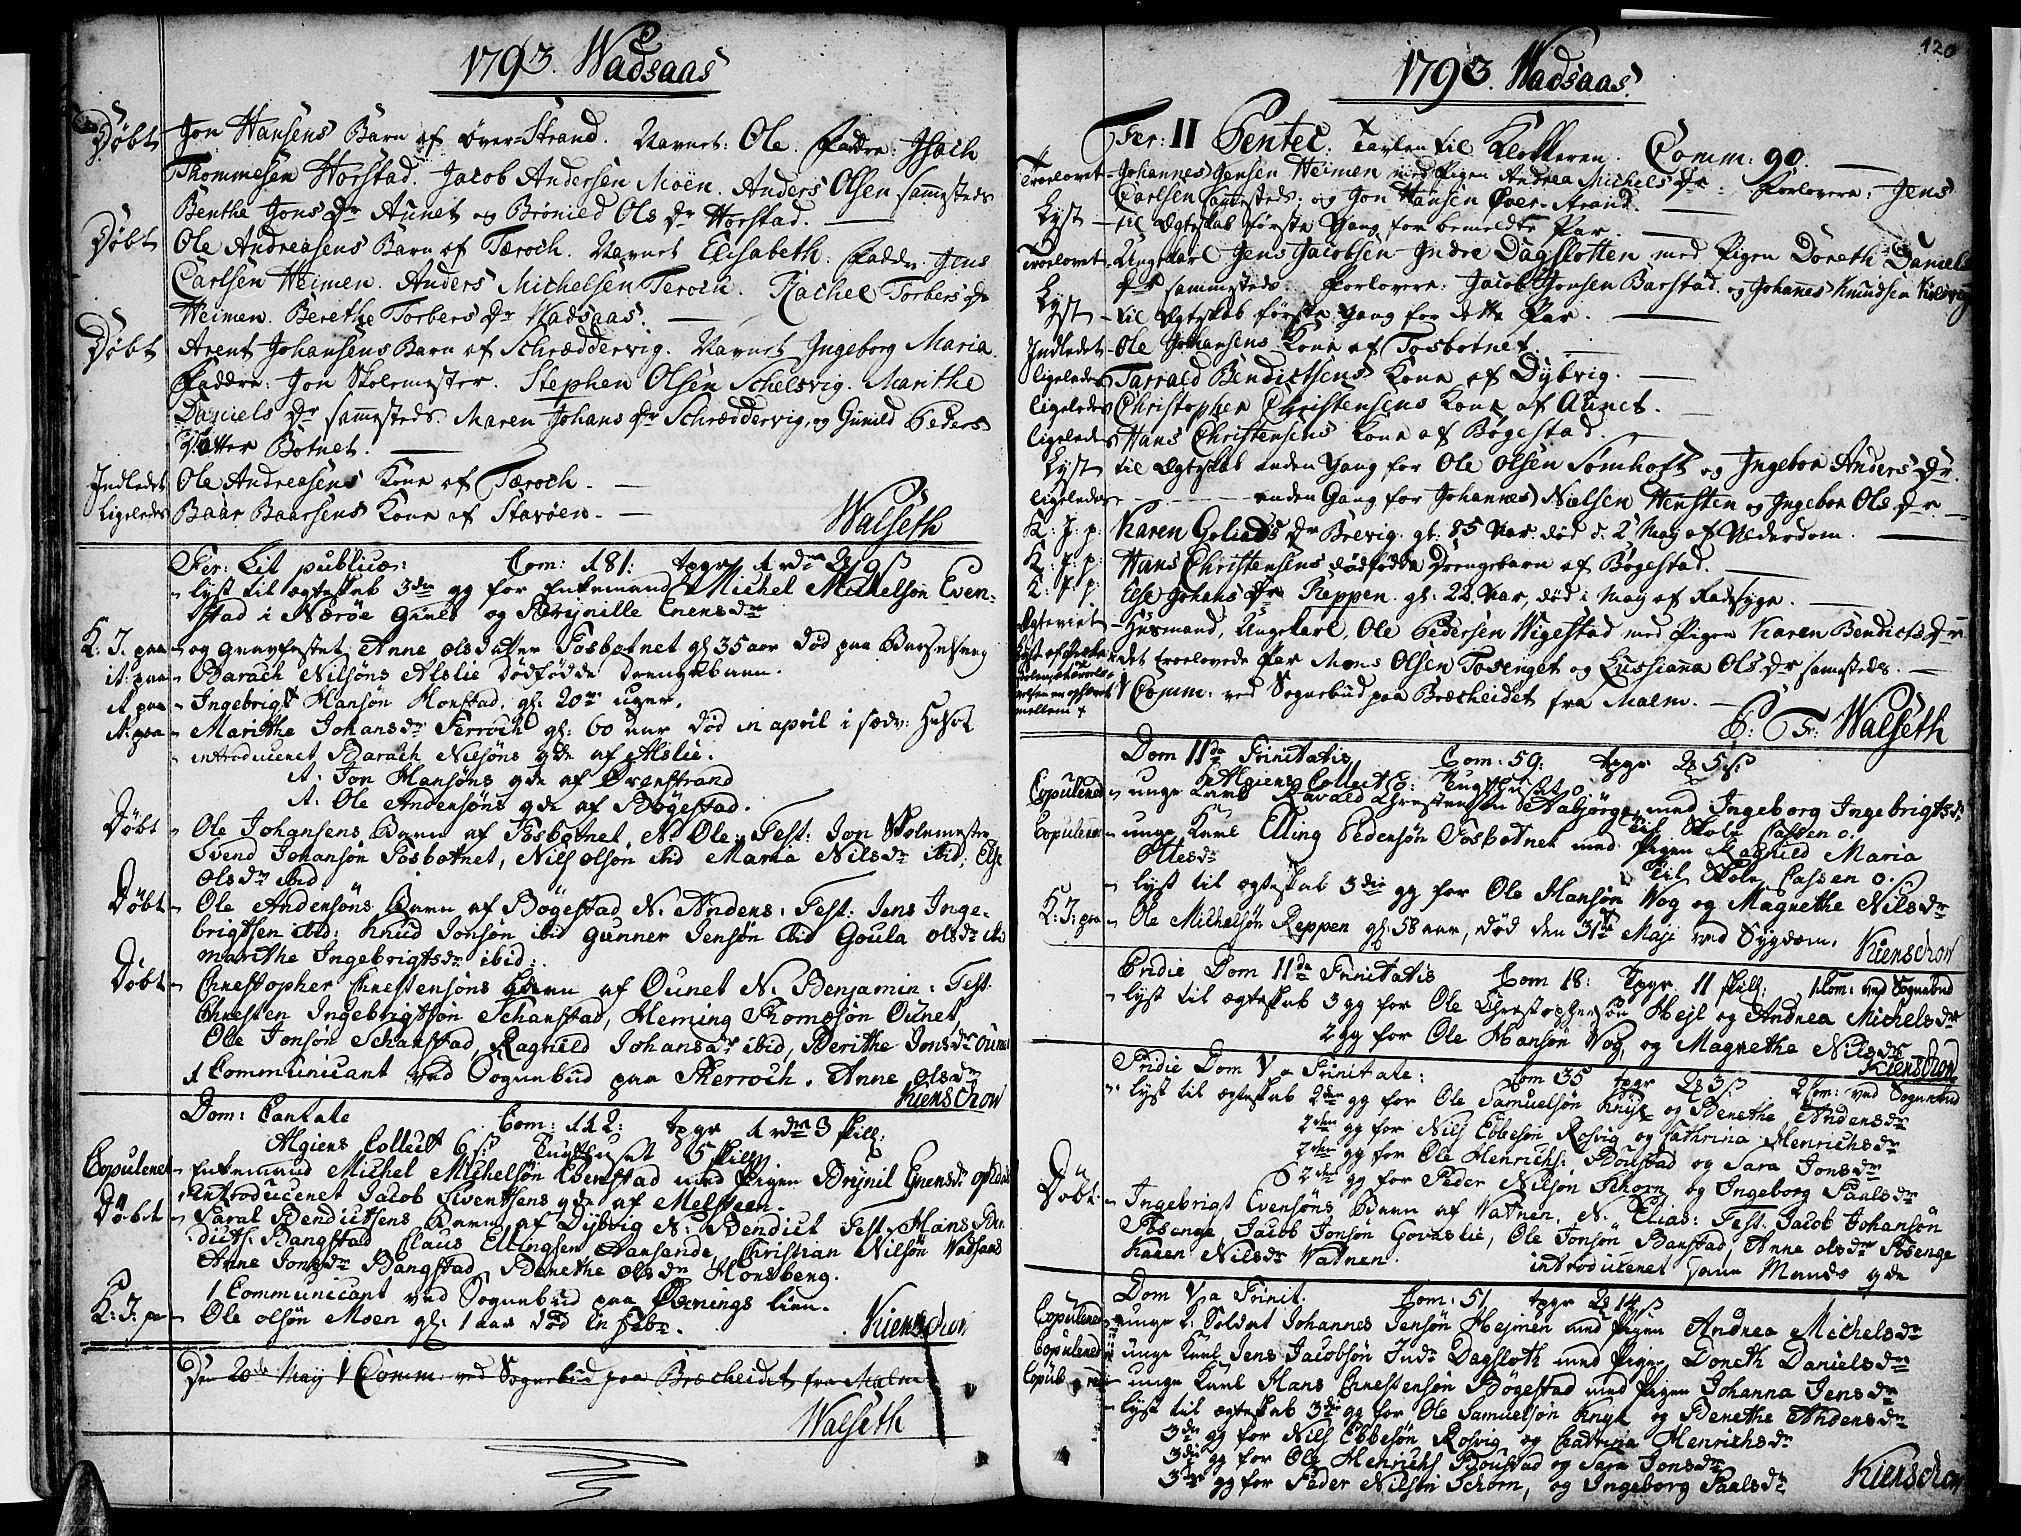 1793. Wadsaas
Døbt Jon Hansens Barn af Øver-Strand. Navnet: Ole. Faddre: Isach
Thommesen Horstad. Jacob Andersen Moen. Anders Olsen sammesteds
Benthe Jons Dr Aunet og Brønild Ols Dr Horstad.
Døbt Ole Andreasens Barn af Tæroch. Navnet Elisabeth. Faddr. Jens
Carlsen Heimen. Anders Michelsen Teroch. Rachel Torbers Dr
Heimen. Berethe Torbers Dr Wadsaas.
Døbt Arent Johansens Barn af Schræddervig. Navnet Ingeborg Maria.
Faddre: Jon Skolemester. Stephen Olsen Schelsvig. Marithe
Daniels Dr sammesteds. Maren Johans Dr Schræddervig, og Gunild Peders
Datter Botnet.
Indledet Ole Andreasens Kone af Tæroch.
Ligeledes Baar Baarsens Kone af Starøen.
Walseth
Fer: Lit publicæ: Com: 181: tpgr 1 rdr
lyst til ægteskab 3die gg for Enkemand Michel Michelsøn Even-
stad i Nærøe Giæld og Brynille Enens dr
K: J. paa og gravfestet Anne olsdatter Fosbotnet gl 35 aar død paa Barselseng
it: paa Barach Nilsøns Alslie dødfødde drengebarn.
it paa Ingebrigt Hansøn Honstad, gl: 20 uger.
it: paa Marithe Johansdr Ferroch gl: 60 aar død in april i
introduceret Barach Nilsøns gde af Alslie.
it: Jon Hansøns gde af Øvenstrand
it: Ole Andersøns gde af Bøgestad.
Døbt Ole Johansens Barn af Fosbotnet, N. Ole: Test: Jon Skolemester
Svend Johansøn Fosbotnet, Nils olsøn ibid Maria Nilsdr ibid. Else
olsdr ibid
Døbt Ole Andersøns Barn af Bøgestad N. Anders: Test: Jens Inge-
brigtsen ibid: Knud Jonsøn ibid Gunner Jensøn ibid Goula olsdr ibid
marithe Ingebrigtsdr ibid:
Døbt Christopher Christensøns Barn af Ounet N. Benjamin: Test.
Christen Ingebrigtsøn Schanstad, Heming Thomæsøn Ounet,
Ole Jonsøn Schanstad, Ragnild Johansdr ibid, Berithe Jonsdr Ounet
1 Communicant ved Sognebud paa Therroch. Anne olsdr
Kienschow
Dom: Cantate Com: 112: tpgr 1 rdr 3 skill:
Algiens Collect 6 ß Tugthuset 5 skill
Copuleret Enkemand Michel Michelsøn Evenstad med Pigen Brynil Enensdr
introduceret Jacob Siventsens gde af Melsteen.
Døbt Taral Bendictsens Barn af Dybvig N: Bendict Test: Hans Ben-
dicts: Bangstad Claus Ellingsen Aansande, Christian Nilsøn Vadsaas
Anne Jonsdr Bangstad, Benethe olsdr Honsberg.
1 Communicant ved Sognebud paa lien.
K: J. paa Ole olsøn Moen gl: 1 aar død in Febr.
Kienschow
Den 20de May 1 Comm. ved Sognebud paa Bræcheidet fra Malm
Walseth
120
1793. Wadsaas.
Fer: II Pentec. Tavlen til Klokkeren. Comm: 90.
Troelovet Johannes Jensen Heimen med Pigen Andrea Michels Dr. Forlovere: Jens
Carlsen sammesteds: og Jon Hansen Øver-Strand.
Lyst til Ægteskab første Gang for bemeldte Par.
Troelovet Ungekarl Jens Jacobsen Indre Dagslotten med Pigen Doreth Daniels
Dr sammesteds: Forlovere: Jacob Jonsen Barstad. og Johannes Knudsen
Lyst til Ægteskab første Gang for dette Par.
Indledet Ole Johansens Kone af Fosbotnet
ligeledes Tarrald Bendictsens Kone af Dybvig.
ligeledes Christopher Christensens Kone af Aunet.
ligeledes Hans Christensens Kone af Bøgestad.
Lyst til Ægteskab anden Gang for Ole Olsen Sømhoft og Ingebor Anders Dr.
ligeledes anden Gang for Johannes Nielsen Hensten og Ingebor Ols Dr
K: J: p: Karen Goliads Dr Brevig. gl: 85 Aar. død d. 2 May af Alderdom.
K: J: p: Hans Christensens dødfødde Drengebarn af Bøgestad.
K: J: p: Else Johans Dr Reppen. gl: 22 Aar, død i May af Radesyge.
Ægteviet Husmand, Ungekarl, Ole Pedersen Wigestad med Pigen Karen Bendicts Dr
det troelovede Par Mons Olsen Tosenget og Lussianna Ols Dr sammesteds.
1 Comm: ved Sognebud paa Bræcheidet fra Malm.
mellem
P: Fr: Walseth
Dom 11da Trinitatis Com: 59: tpgr 2 5 ß
Algiens Collect 8: Tugthuset 0.
Copuleret unge Karl Havald Christensen med Ingeborg Ingebrigtsdr
til Skole Cassen 0.
Copuleret unge Karl Elling Pedersøn Fosbotnet med Pigen Ragnild Maria
Ottesdr Til Skole Cassen 0.
lyst til ægteskab 3die gg for Ole Hansøn Vog og Magnethe Nilsdr
K: J: paa Ole Michelsøn Reppen gl: 58 aar, død den 31te Maji ved Sygdom.
Kienschow
Pridie Dom 11da Trinitatis Com 18: tpgr 11 skill: 1 Com: ved Sognebud
lyst til ægteskab 3 gg for Ole Christophersøn Hejl og Andrea Michelsdr
2 gg for Ole Hansøn Vog, og Magnethe Nilsdr
Kienschow
Pridie Dom V a Trinitate: Com 35 tpgr 2 3 ß 2 Com: ved Sognebud
lyst til ægteskab 2den gg for Ole Samuelsøn Knyk og Benethe Andersdr
2den gg for Nils Ebbesøn Rosvig og Cathrina Henrichsdr
2den gg for Ole Henrichs: Boustad og Sara Jonsdr
2den gg for Peder Nilsøn Schorn og Ingeborg Paalsdr
Døbt Ingebrigt Evensøns Barn af Vatnen. N. Elias: Test: Jacob Johansøn
Fosenge Jacob Jonsøn Govaslie, Ole Jonsøn Banstad, Anne olsdr Fosenge
Karen Nilsdr Vatnen. introduceret samme Mands gde
Dom V a Trinit. Com: 51 tpgr 2 14 ß
Copuleret unge k: Soldat Johannes Jensøn Hejmen med Pigen Andrea Michelsdr
Copuleret unge Karl Jens Jacobsøn Indr Dagsloth med Pigen Doreth Danielsdr
unge Karl Hans Christensøn Bøgestad med Pigen Johanna Jensdr
lyst til ægteskab 3die gg for Ole Samuelsøn Knyk og Benethe Andersdr
3die gg for Nils Ebbesøn Rosvig og Cathrina Henrichsdr
3die gg for Ole Henrichs Boustad og Sara Jonsdr
3die gg for Peder Nilsøn Schorn, og Ingeborg Paalsdr
Kienschow